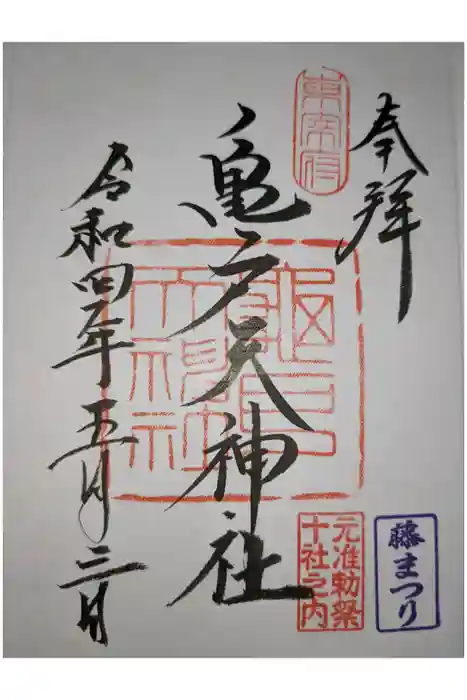 奉拝
東宰府
亀戸天神社
亀戸
天神社
令和四年五月三日
藤まつり
元准勅祭
十社之内